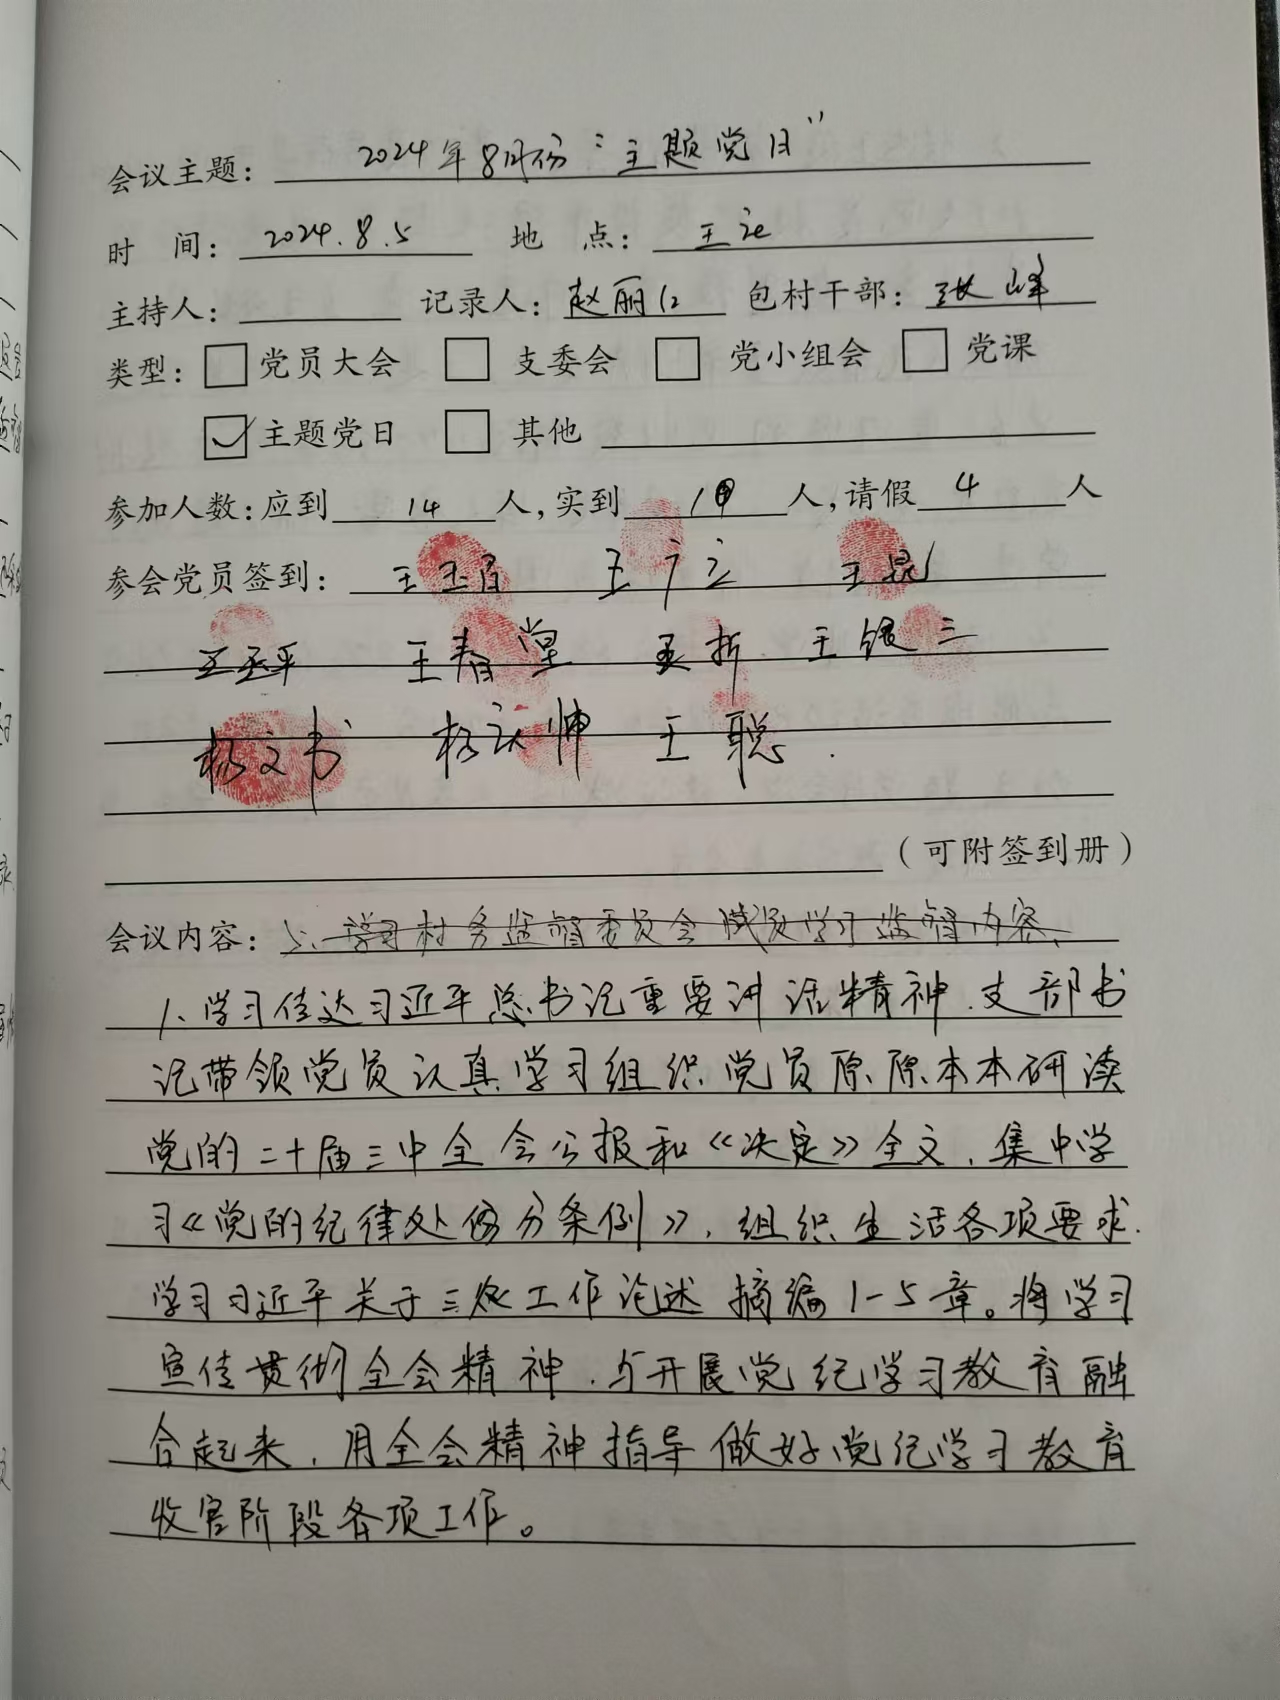 会议主题：2024年8月份“主题党日”
时 间：2024.8.5 地 点：王记
主持人： 记录人：赵丽仁 包村干部：张峰
类型：□党员大会 □支委会 □党小组会 □党课
☑主题党日 □其他
参加人数：应到 14 人，实到 10 人，请假 4 人
参会党员签到： 王广立 王昆
王丕平 王春堂 王银三
杨文书 王聪
（可附签到册）
会议内容：学习村务监督委员会成员学习监督内容、
1、学习传达习近平总书记重要讲话精神．支部书
记带领党员认真学习组织党员原原本本研读
党的二十届三中全会公报和《决定》全文．集中学
习《党的纪律处分条例》，组织生活各项要求．
学习习近平关于三农工作论述摘编1-5章。将学习
宣传贯彻全会精神．与开展党纪学习教育融
合起来，用全会精神指导做好党纪学习教育
收官阶段各项工作。